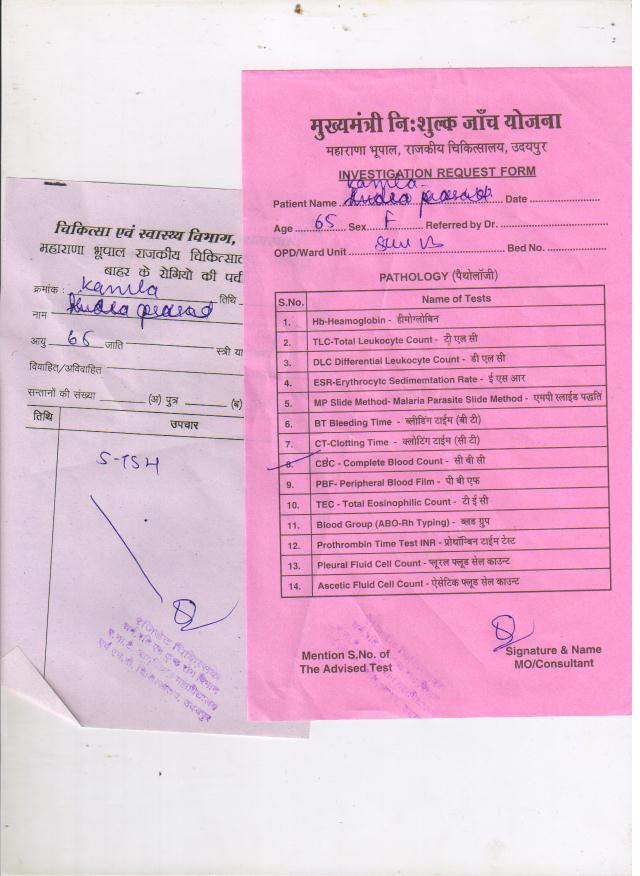 चिकित्सा एवं स्वास्थ्य विभाग,
महाराणा भूपाल राजकीय चिकित्साल
बाहर के रोगियो की पर्च
क्रमांक : Kamla तिथि
नाम
आयु 65 जाति स्त्री या
विवाहित/अविवाहित
सन्तानों की संख्या (अ) पुत्र (ब)
तिथि उपचार
S-TSH
मुख्यमंत्री निःशुल्क जाँच योजना
महाराणा भूपाल, राजकीय चिकित्सालय, उदयपुर
INVESTIGATION REQUEST FORM
Kamla
Patient Name Date
Age 65 Sex F Referred by Dr.
OPD/Ward Unit Bed No.
PATHOLOGY (पैथोलॉजी)
S.No. Name of Tests
1. Hb-Heamoglobin - हीमोग्लोबिन
2. TLC-Total Leukocyte Count - टी एल सी
3. DLC Differential Leukocyte Count - डी एल सी
4. ESR-Erythrocytc Sedimemtation Rate - ई एस आर
5. MP Slide Method- Malaria Parasite Slide Method - एमपी स्लाईड पद्धति
6. BT Bleeding Time - ब्लीडिंग टाईम (बी टी)
7. CT-Clotting Time - क्लोटिंग टाईम (सी टी)
8. CBC - Complete Blood Count - सी बी सी
9. PBF- Peripheral Blood Film - पी बी एफ
10. TEC - Total Eosinophilic Count - टी ई सी
11. Blood Group (ABO-Rh Typing) - ब्लड ग्रुप
12. Prothrombin Time Test INR - प्रोथॉम्बिन टाईम टेस्ट
13. Pleural Fluid Cell Count - प्लूरल फ्लूड सेल काउन्ट
14. Ascetic Fluid Cell Count - ऐसेटिक फ्लूड सेल काउन्ट
Mention S.No. of
The Advised Test
Signature & Name
MO/Consultant